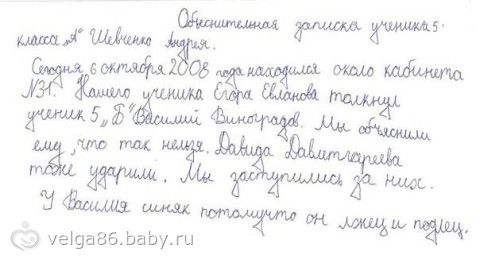 Объяснительная записка ученика 5-
класса „А" Шевченко Андрея.
Сегодня 6 октября 2008 года находился около кабинета
N31. Нашего ученика Егора Евланова толкнул
ученик 5 „Б" Василий Виноградов. Мы объяснили
ему, что так нельзя. Давида Давлетгареева
тоже ударили. Мы заступились за них.
У Василия синяк потомучто он лжец и подлец.
velga86.baby.ru